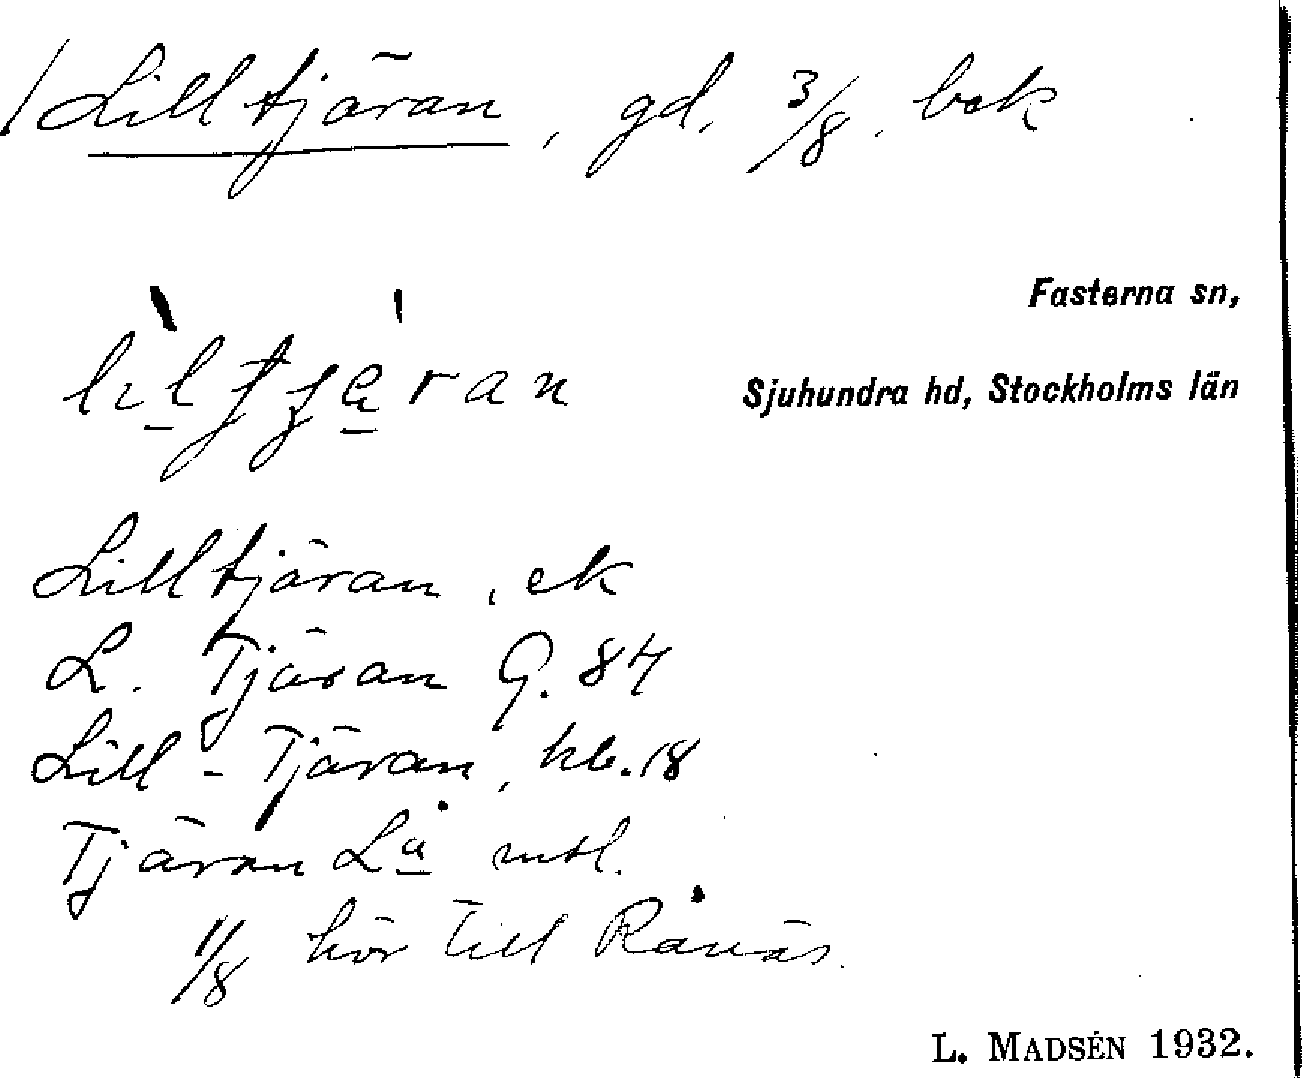 Lilltjäran, gd. 3/8. bek
Fasterna sn,
Sjuhundra hd, Stockholms län
Lilltjäran, ek
L. Tjäran G. 84
Lill-Tjäran, hb. 18
Tjäran La mtl.
1/8 hör till Rånäs.
L. MADSÉN 1932.